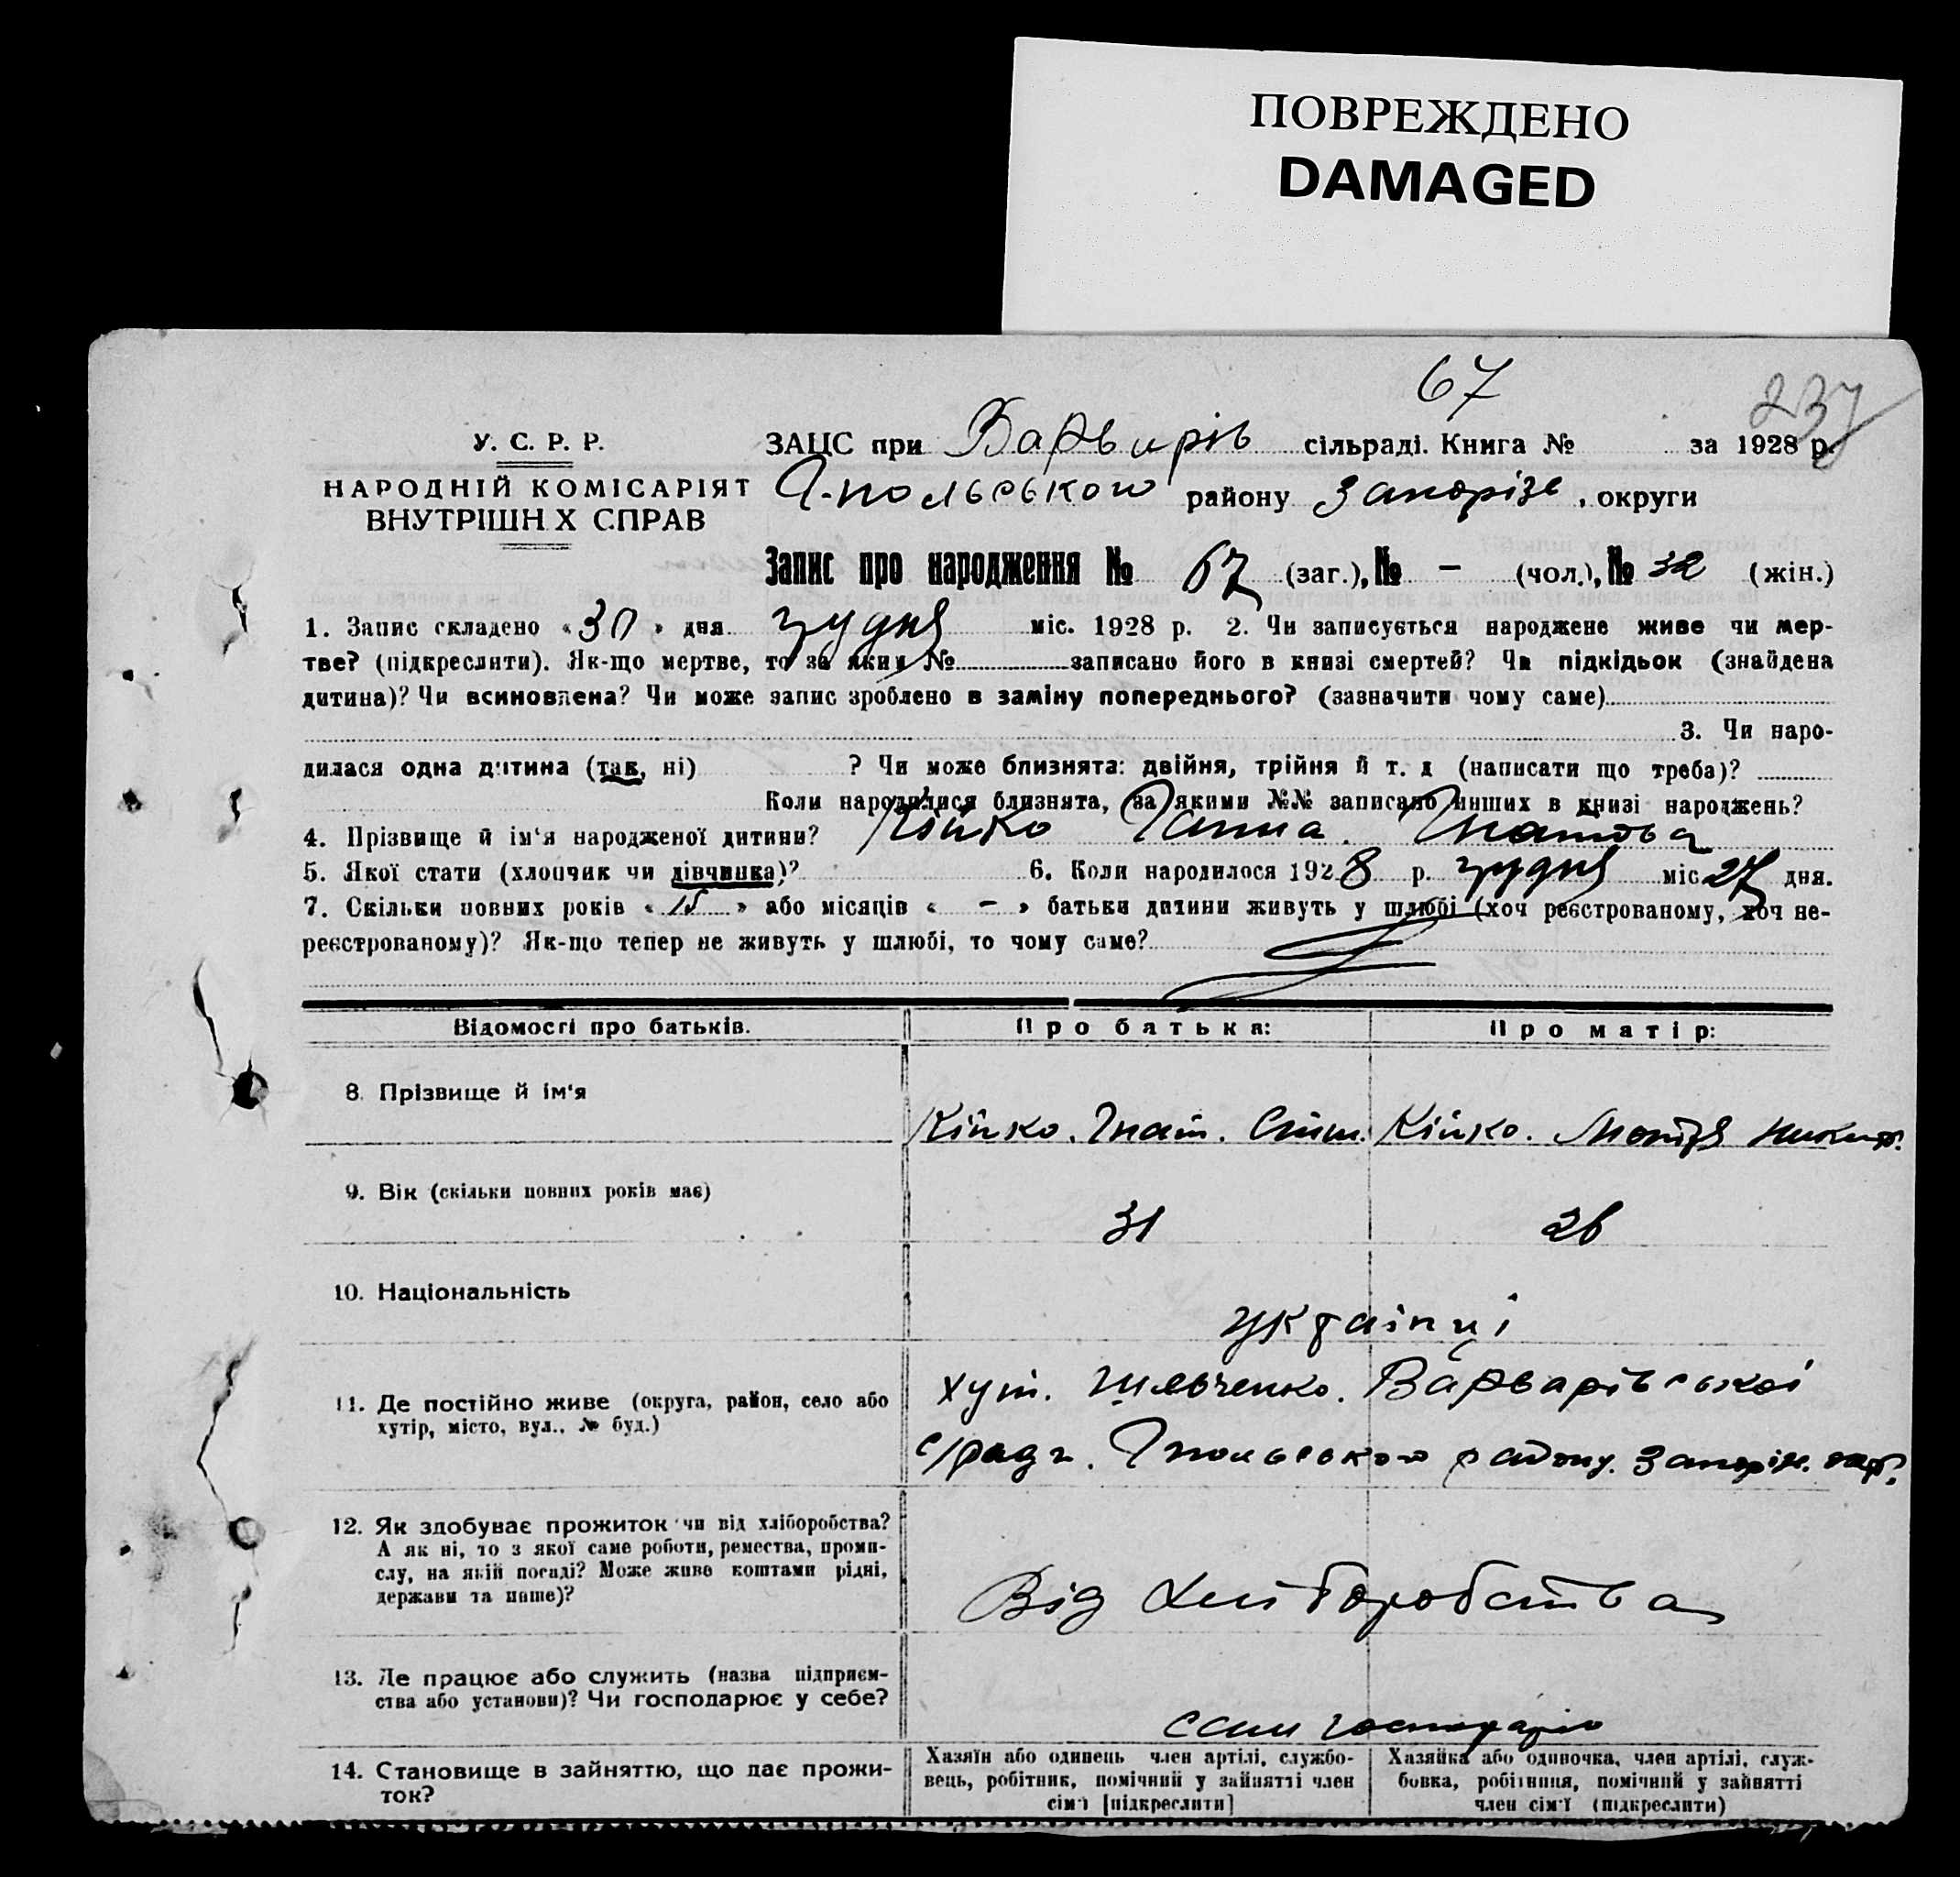 ПОВРЕЖДЕНО
DAMAGED
67
237
У. С. Р. Р.
НАРОДНІЙ КОМІСАРІЯТ
ВНУТРІШН Х СПРАВ
ЗАЦС при Варварів сільраді. Книга № за 1928 р.
району Запорізь. округи
Запис про народження № 67 (заг.), № - (чол.), № 32 (жін.)
1. Запис складено «30» дня грудня міс. 1928 р. 2. Чи записується народжене живе чи мер-
тве? (підкреслити). Як-що мертве, то за яким № записано його в книзі смертей? Чи підкідьок (знайдена
дитина)? Чи всиновлена? Чи може запис зроблено в заміну попереднього? (зазначити чому саме)
3. Чи наро-
дилася одна дитина (так, ні) ? Чи може близнята: двійня, трійня й т. д (написати що треба)?
Коли народилися близнята, за якими №№ записано инших в книзі народжень?
4. Прізвище й ім'я народженої дитини? Кійко Ганна. Гнатова
5. Якої стати (хлопчик чи дівчинка)? 6. Коли народилося 1928 р. грудня міс 27 дня.
7. Скільки повних років «15» або місяців « - » батьки дитини живуть у шлюбі (хоч реєстрованому, хоч не-
реєстрованому)? Як-що тепер не живуть у шлюбі, то чому саме?
Відомості про батьків. Про батька: Про матір:
8. Прізвище й ім'я
Кійко. Гнат. Кійко. Мотря Никиф.
9. Вік (скільки повних років має)
31 26
10. Національність
українці
11. Де постійно живе (округа, район, село або
хутір, місто, вул., № буд.)
хут. Варварівської
с/ради. району. Запоріж. окр.
12. Як здобуває прожиток чи від хліборобства?
А як ні, то з якої саме роботи, ремества, проми-
слу, на якій посаді? Може живе коштами рідні,
держави та инше)?
Від хліборобства
13. Де працює або служить (назва підприєм-
ства або установи)? Чи господарює у себе?
сами господарі
14. Становище в зайняттю, що дає прожи-
ток?
Хазяїн або одинець член артілі, службо-
вець, робітник, помічний у зайнятті член
сім'ї [підкреслити]
Хазяйка або одиночка, член артілі, служ-
бовка, робітниця, помічний у зайнятті
член сім'ї (підкреслити)